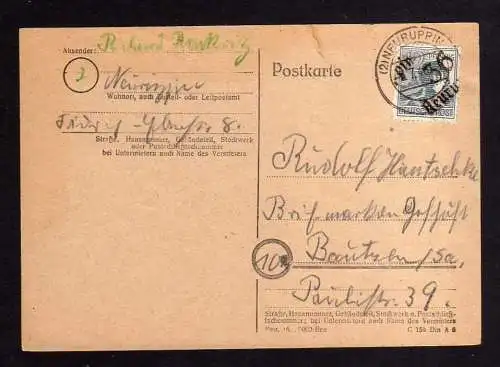 Absender:
2
Neuruppin
Wohnort, auch Zustell- oder Leitpostamt
8.
Straße, Hausnummer, Gebäudeteil, Stockwerk
oder Postschließfachnummer
bei Untermietern auch Name des Vermieters
Postkarte
(2) NEURUPPIN
36
DEUTSCHE POST
Rudolf Hantschke
Briefmarken Geschäft
10a
Bautzen/Sa,
Paulistr. 39.
Straße, Hausnummer, Gebäudeteil, Stockwerk u. Postschließ-
fachnummer; bei Untermietern auch Name des Vermieters
C 154 Din A 6